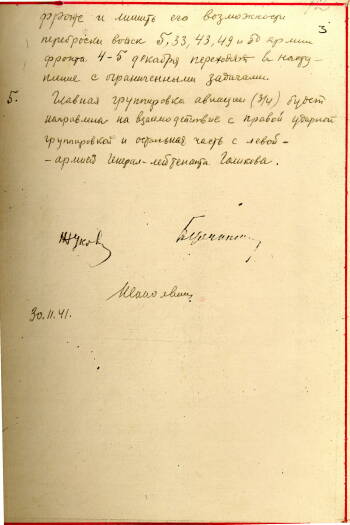 3
фронте и лишить его возможности
переброски войск 5, 33, 43, 49 и 50 армии
фронта 4-5 декабря переходят в насту-
пление с ограниченными задачами.
5. Главная группировка авиации (3/4) будет
направлена на взаимодействие с правой ударной
группировкой и остальная часть с левой -
- армией Генерал-лейтенанта Голикова.
Жуков Булганин
30.11.41.